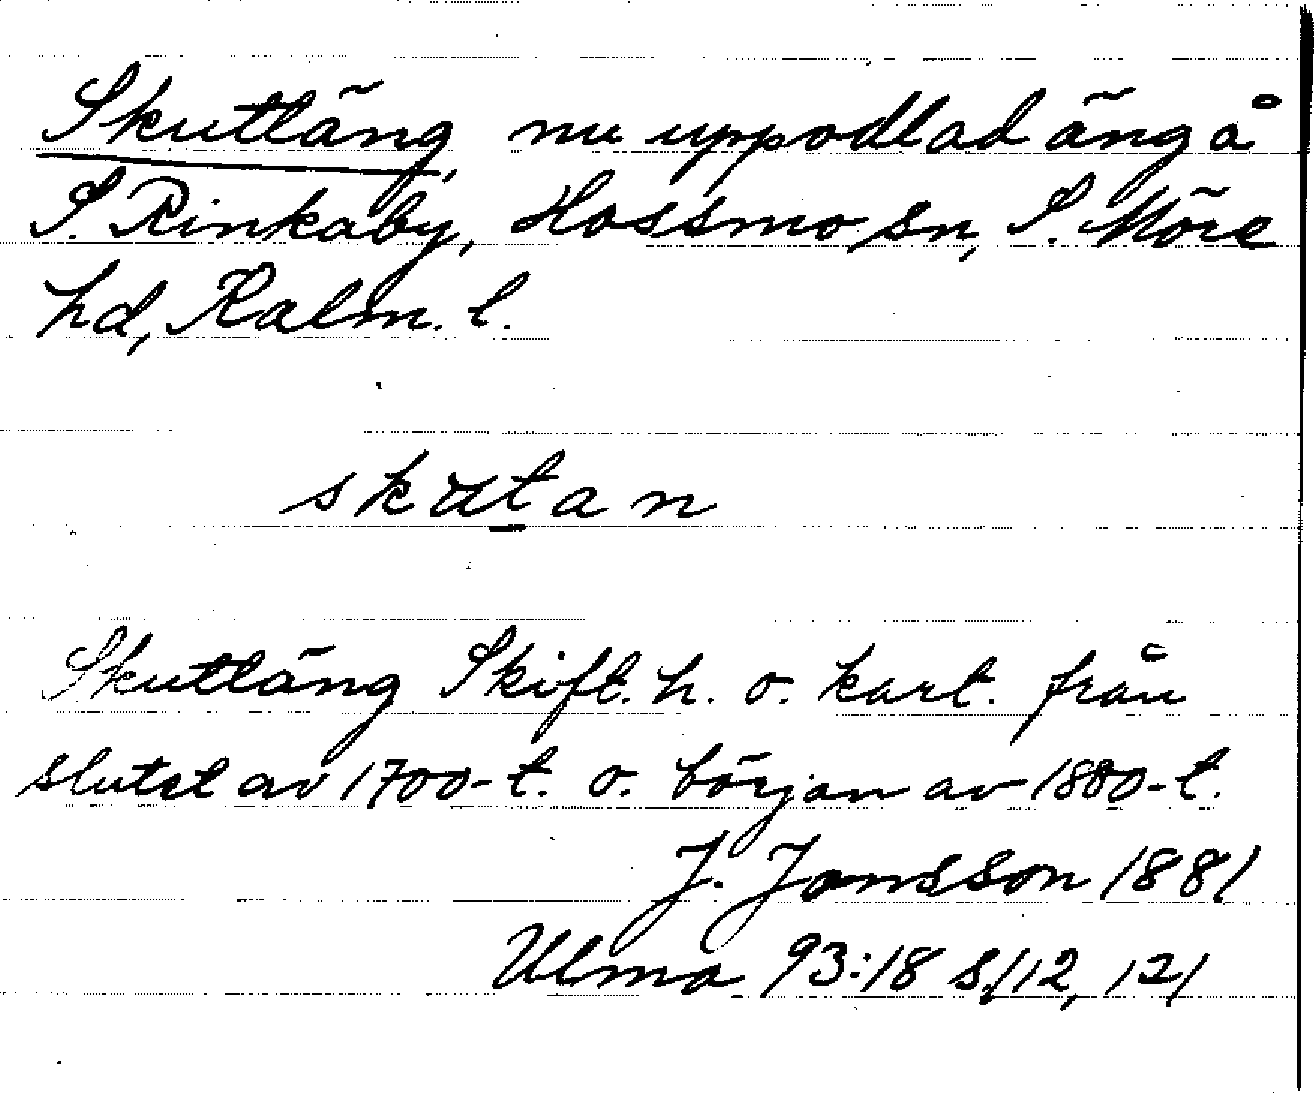 Skutläng, nu uppodlad äng å
S. Rinkaby, Hossmo sn, S. Möre
hd, Kalm. l.
skutan
Skutläng Skift. h. o. kart. från
slutet av 1700-t. o. början av 1800-t.
J. Jonsson 1881
Ulma 93:18 s. 112, 121